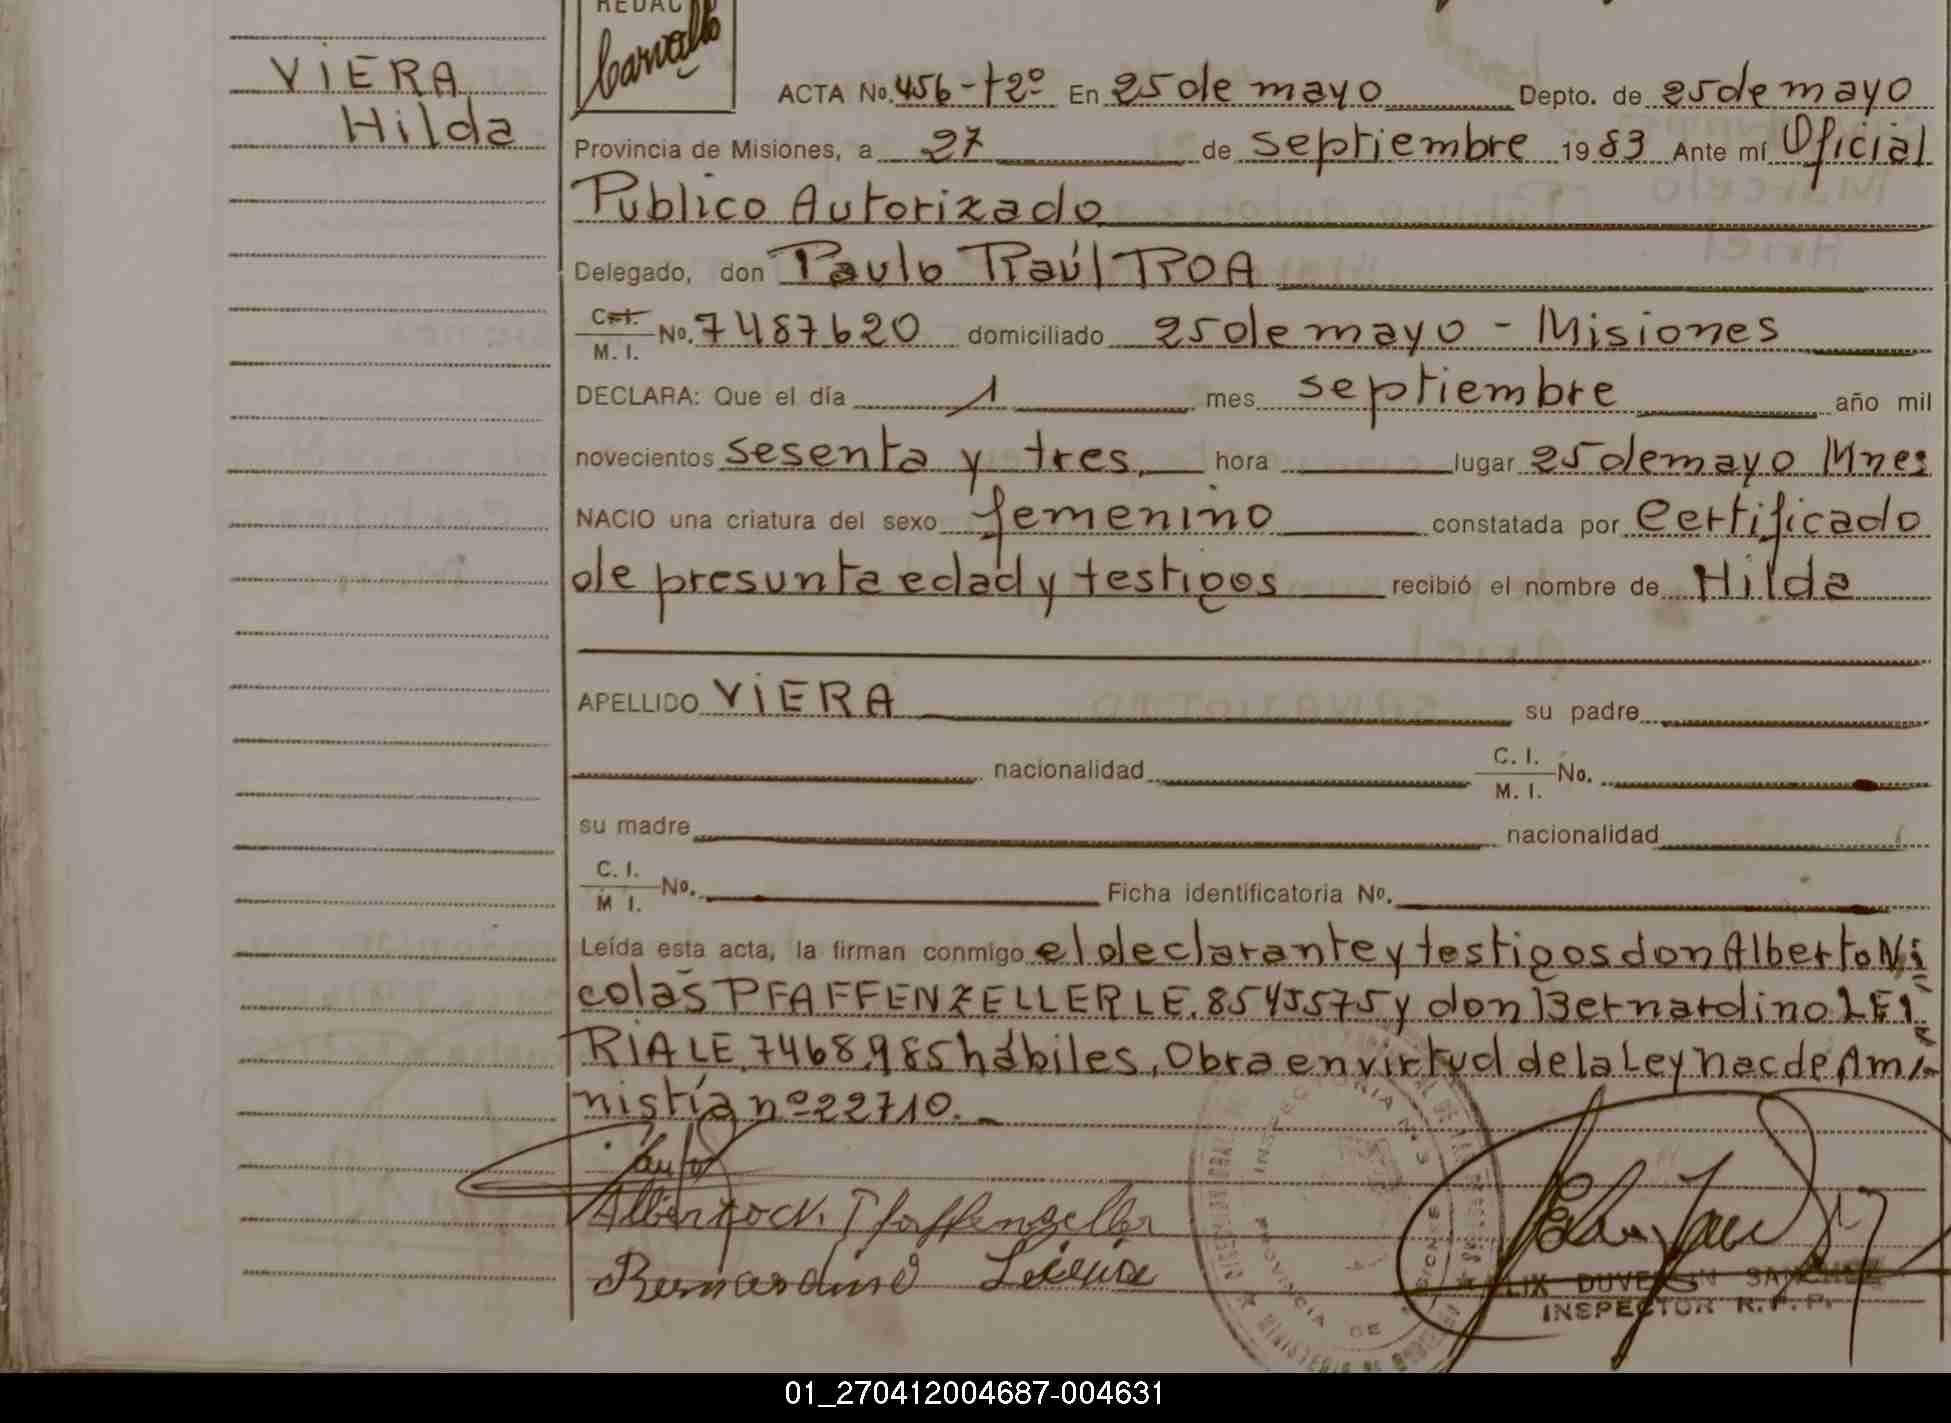 REDAC
Carvallo
VIERA
Hilda
ACTA No. 456-t2º En 25 de mayo Depto. de 25 de mayo
Provincia de Misiones, a 27 de septiembre 1983 Ante mí Oficial
Publico Autorizado
Delegado, don Paulo Raúl ROA
C. I. / M. I. No. 7487620 domiciliado 25 de mayo - Misiones
DECLARA: Que el día 1 mes septiembre año mil
novecientos sesenta y tres, hora lugar 25 de mayo Mnes
NACIO una criatura del sexo femenino constatada por Certificado
de presunta edad y testigos recibió el nombre de Hilda
APELLIDO VIERA su padre
nacionalidad C. I. / M. I. No.
su madre nacionalidad
C. I. / M I. No. Ficha identificatoria No.
Leída esta acta, la firman conmigo el declarante y testigos don Alberto Ni
colás PFAFFENZELLER LE. 8545575 y don Bernardino LEI
RIA LE. 7468985 hábiles, Obra en virtud de la Ley Nac de Am
nistía nº 22710.-
Alberto N. Pfaffenzeller
Bernardino Leiria
INSPECTORIA Nº 3
PROVINCIA DE MISIONES
DUVE N SANCHEZ
INSPECTOR R. P. P.
01_270412004687-004631